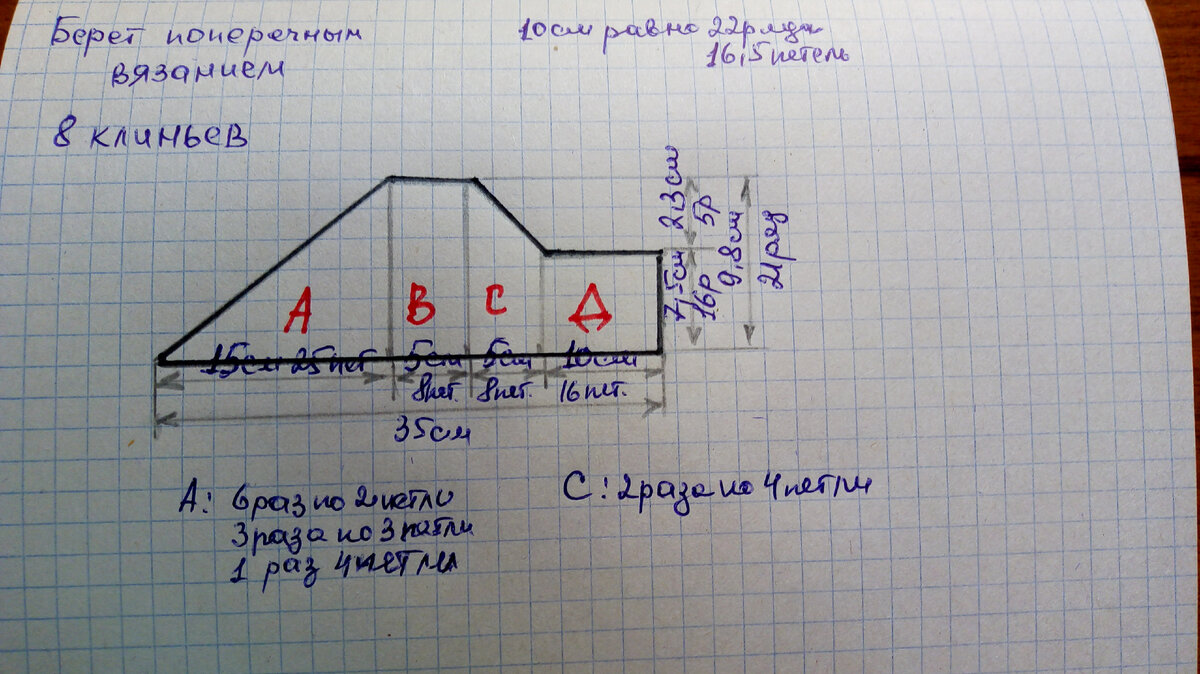 Берет поперечным
вязанием
10см равно 22ряда
16,5петель
8 клиньев
2,3см
5р
7,5см
16р
9,8см
21ряд
А
В
С
Д
15см 25пет
5см
5см
10см
8пет.
8пет.
16пет.
35см
А: 6раз по 2петли
3раза по 3петли
1 раз 4петли
С: 2раза по 4петли